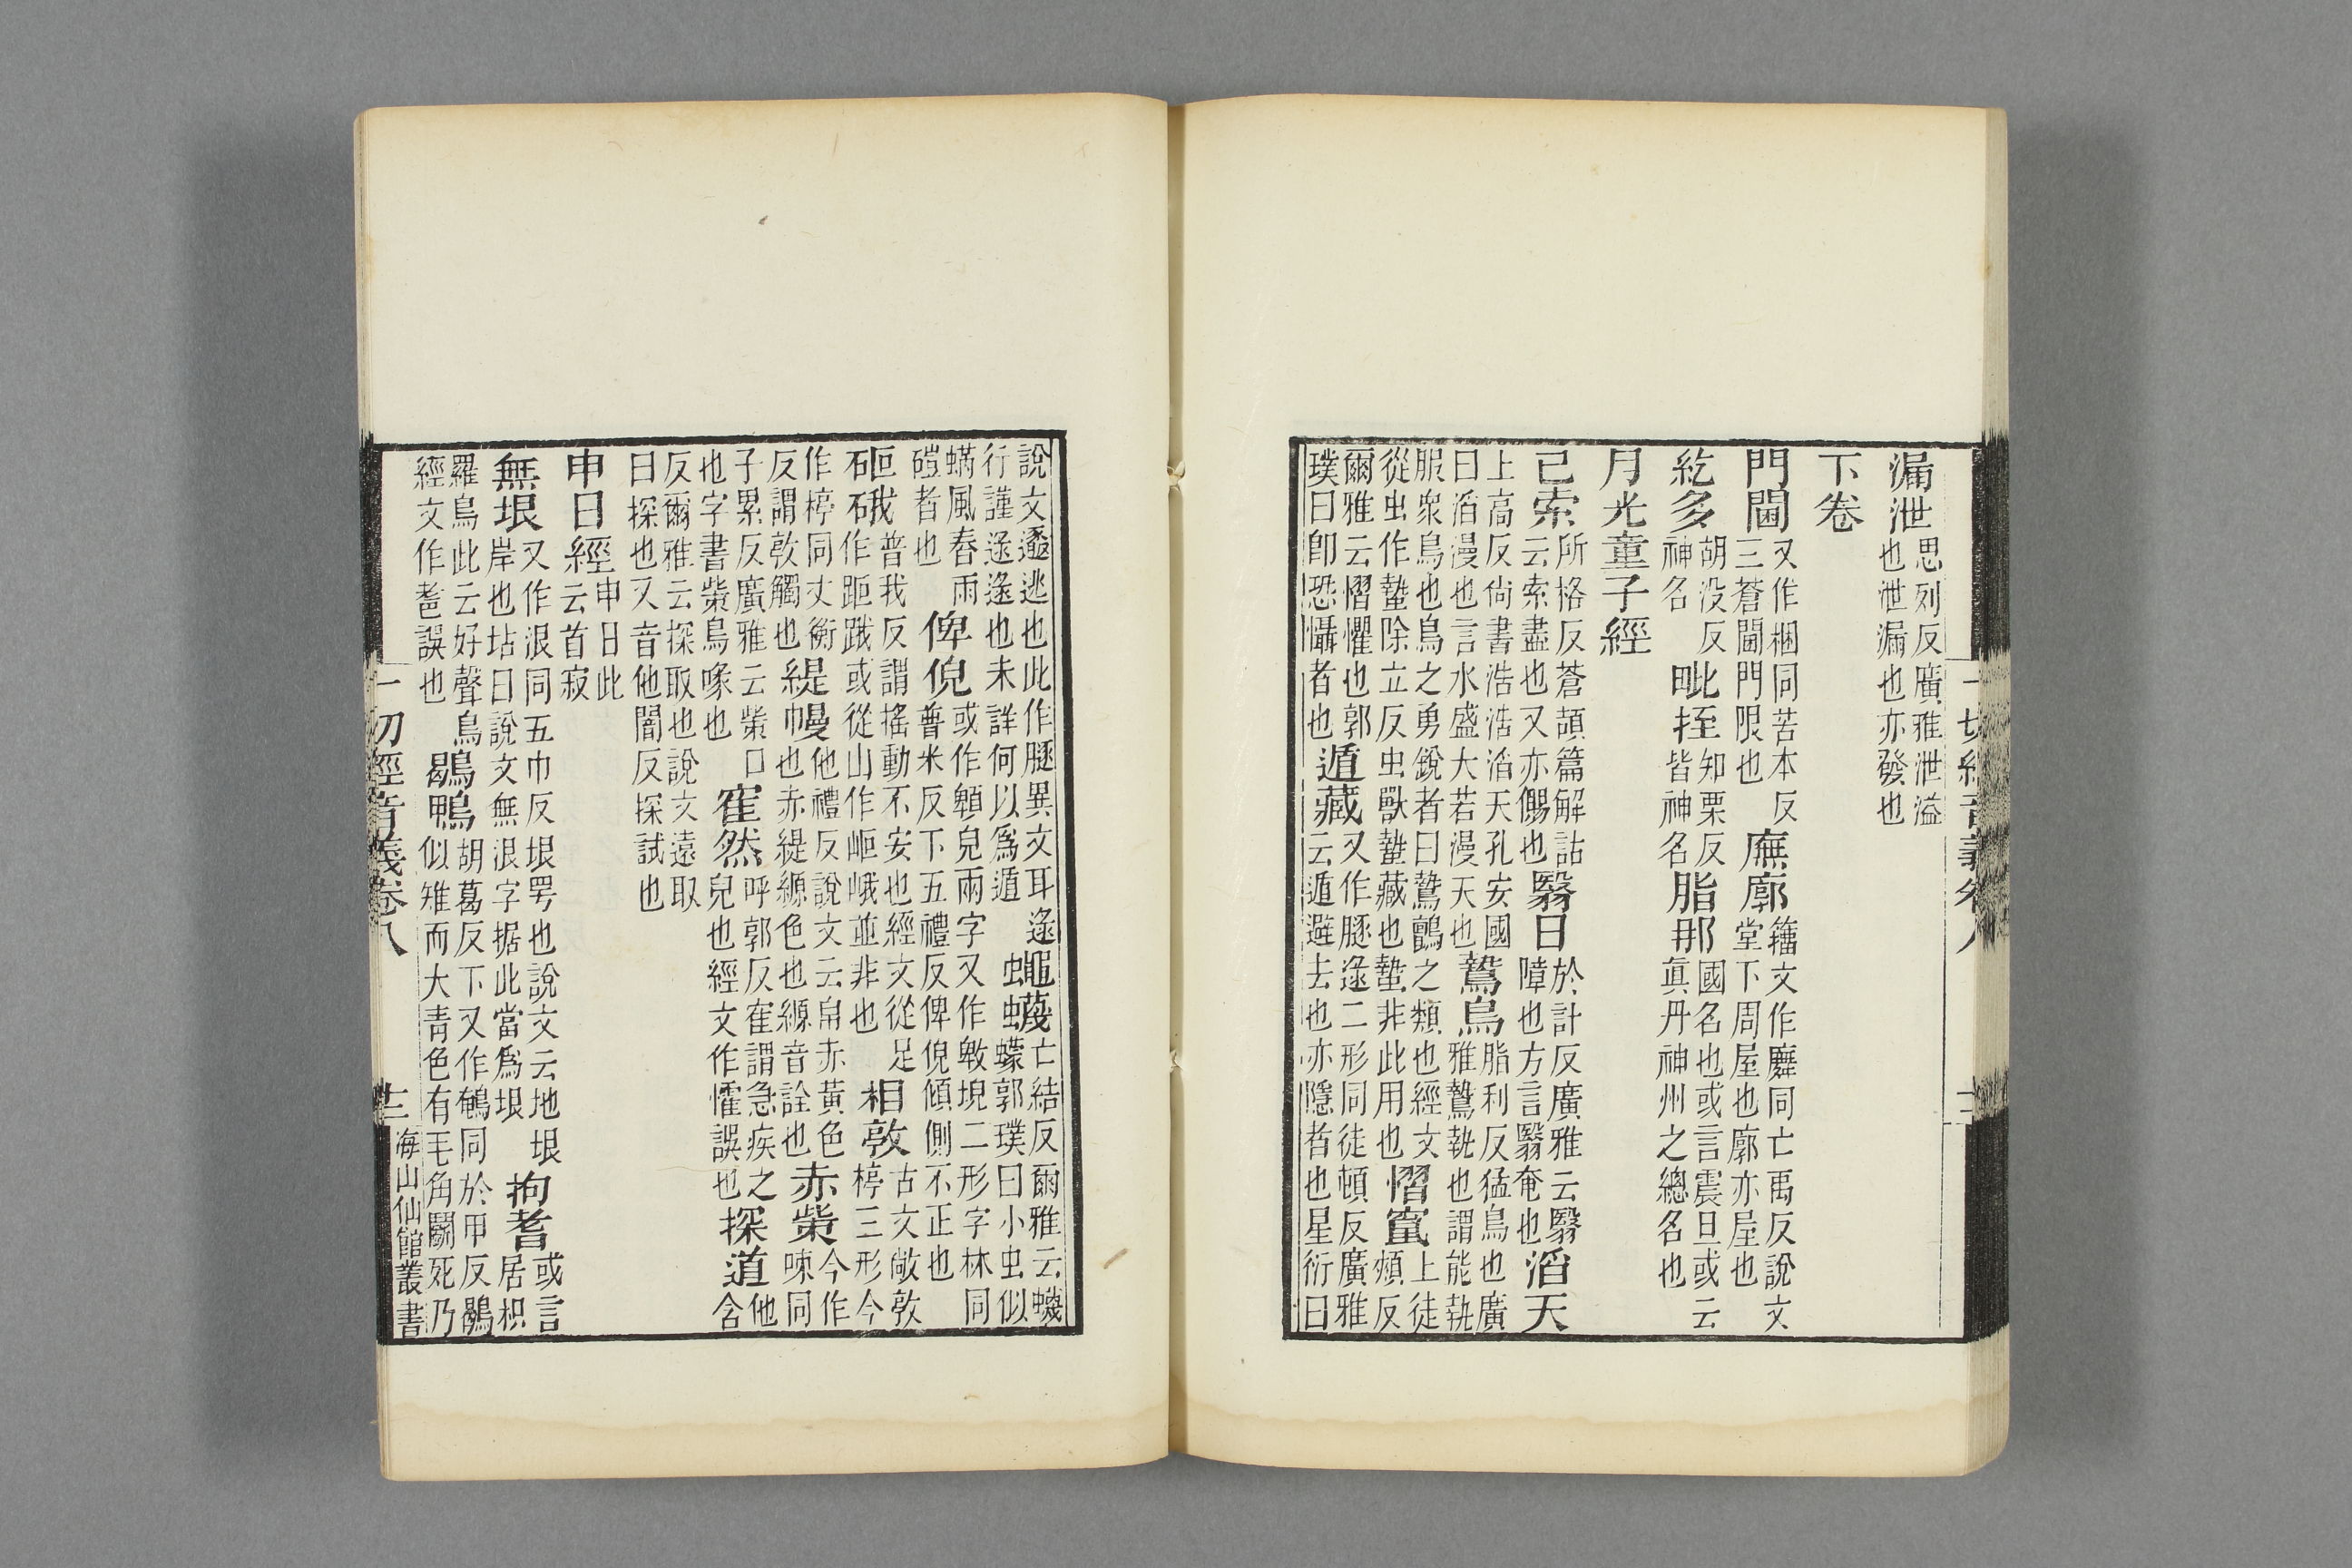 漏泄思列反廣雅泄溢也泄漏也亦發也
下卷
門閫又作梱同苦本反三蒼閫門限也廡廓籒文作廡同亡禹反說文堂下周屋也廓亦屋也
紇多胡没反神名毗挃知栗反皆神名脂那國名也或言震旦或云眞丹神州之總名也
月光童子經
已索所格反蒼頡篇解詁云索盡也又亦儩也翳日於計反廣雅云翳障也方言翳奄也滔天
上高反尙書浩浩滔天孔安國曰滔漫也言水盛大若漫天也鷙鳥脂利反猛鳥也廣雅鷙執也謂能執
服衆鳥也鳥之勇銳者曰鷙鸇之類也經文從虫作蟄除立反虫獸蟄藏也蟄非此用也慴竄上徒頰反
爾雅云慴懼也郭璞曰卽恐懾者也遁藏又作遯逯二形同徒頓反廣雅云遁避去也亦隱者也星衍曰
一切經音義卷八
說文遯逃也此作遯異文耳逯行謹逯逯也未詳何以爲遁蠅蠛亡結反爾雅云蠛蠓郭璞曰小虫似
蟎風舂雨磑者也俾倪或作兩字又作堄二形字林同普米反下五禮反俾倪傾側不正也
硪普我反謂搖動不安也經文從足作距踀或從山作岠峨並非也相敦古文敞敦㯑三形今
作㯑同丈衡反謂敦觸也緹幔他禮反說文云帛赤黃色也赤緹縓色也縓音詮也赤㭰今作㖩同
子累反廣雅云㭰口也字書㭰鳥喙也寉然呼郭反寉謂急疾之皃也經文作懼誤也探道他含
反爾雅云探取也說文遠取曰探也又音他闇反探試也
申日經申日此云首寂
無垠又作泿同五巾反垠咢也說文云地垠岸也坫曰說文無泿字据此當爲垠拘耆或言居枳
羅鳥此云好聲鳥經文作耆誤也鶡鴨胡葛反下又作䳺同於甲反鶡似雉而大青色有毛角鬭死乃
一切經音義卷八 十二 海山仙館叢書